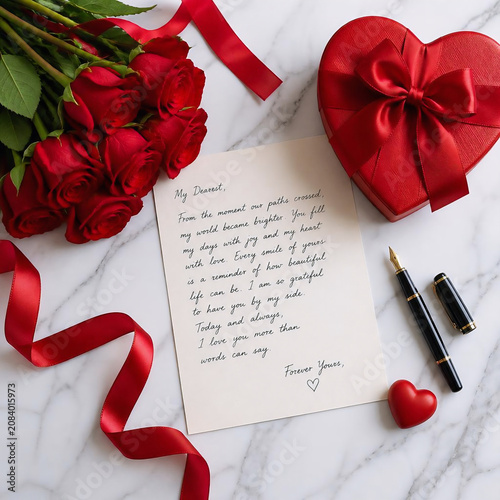 My Dearest,
From the moment our paths crossed,
my world became brighter. You fill
my days with joy and my heart
with love. Every smile of yours
is a reminder of how beautiful
life can be. I am so grateful
to have you by my side.
Today and always,
I love you more than
words can say.
Forever Yours,
Adobe Stock | #2084015973